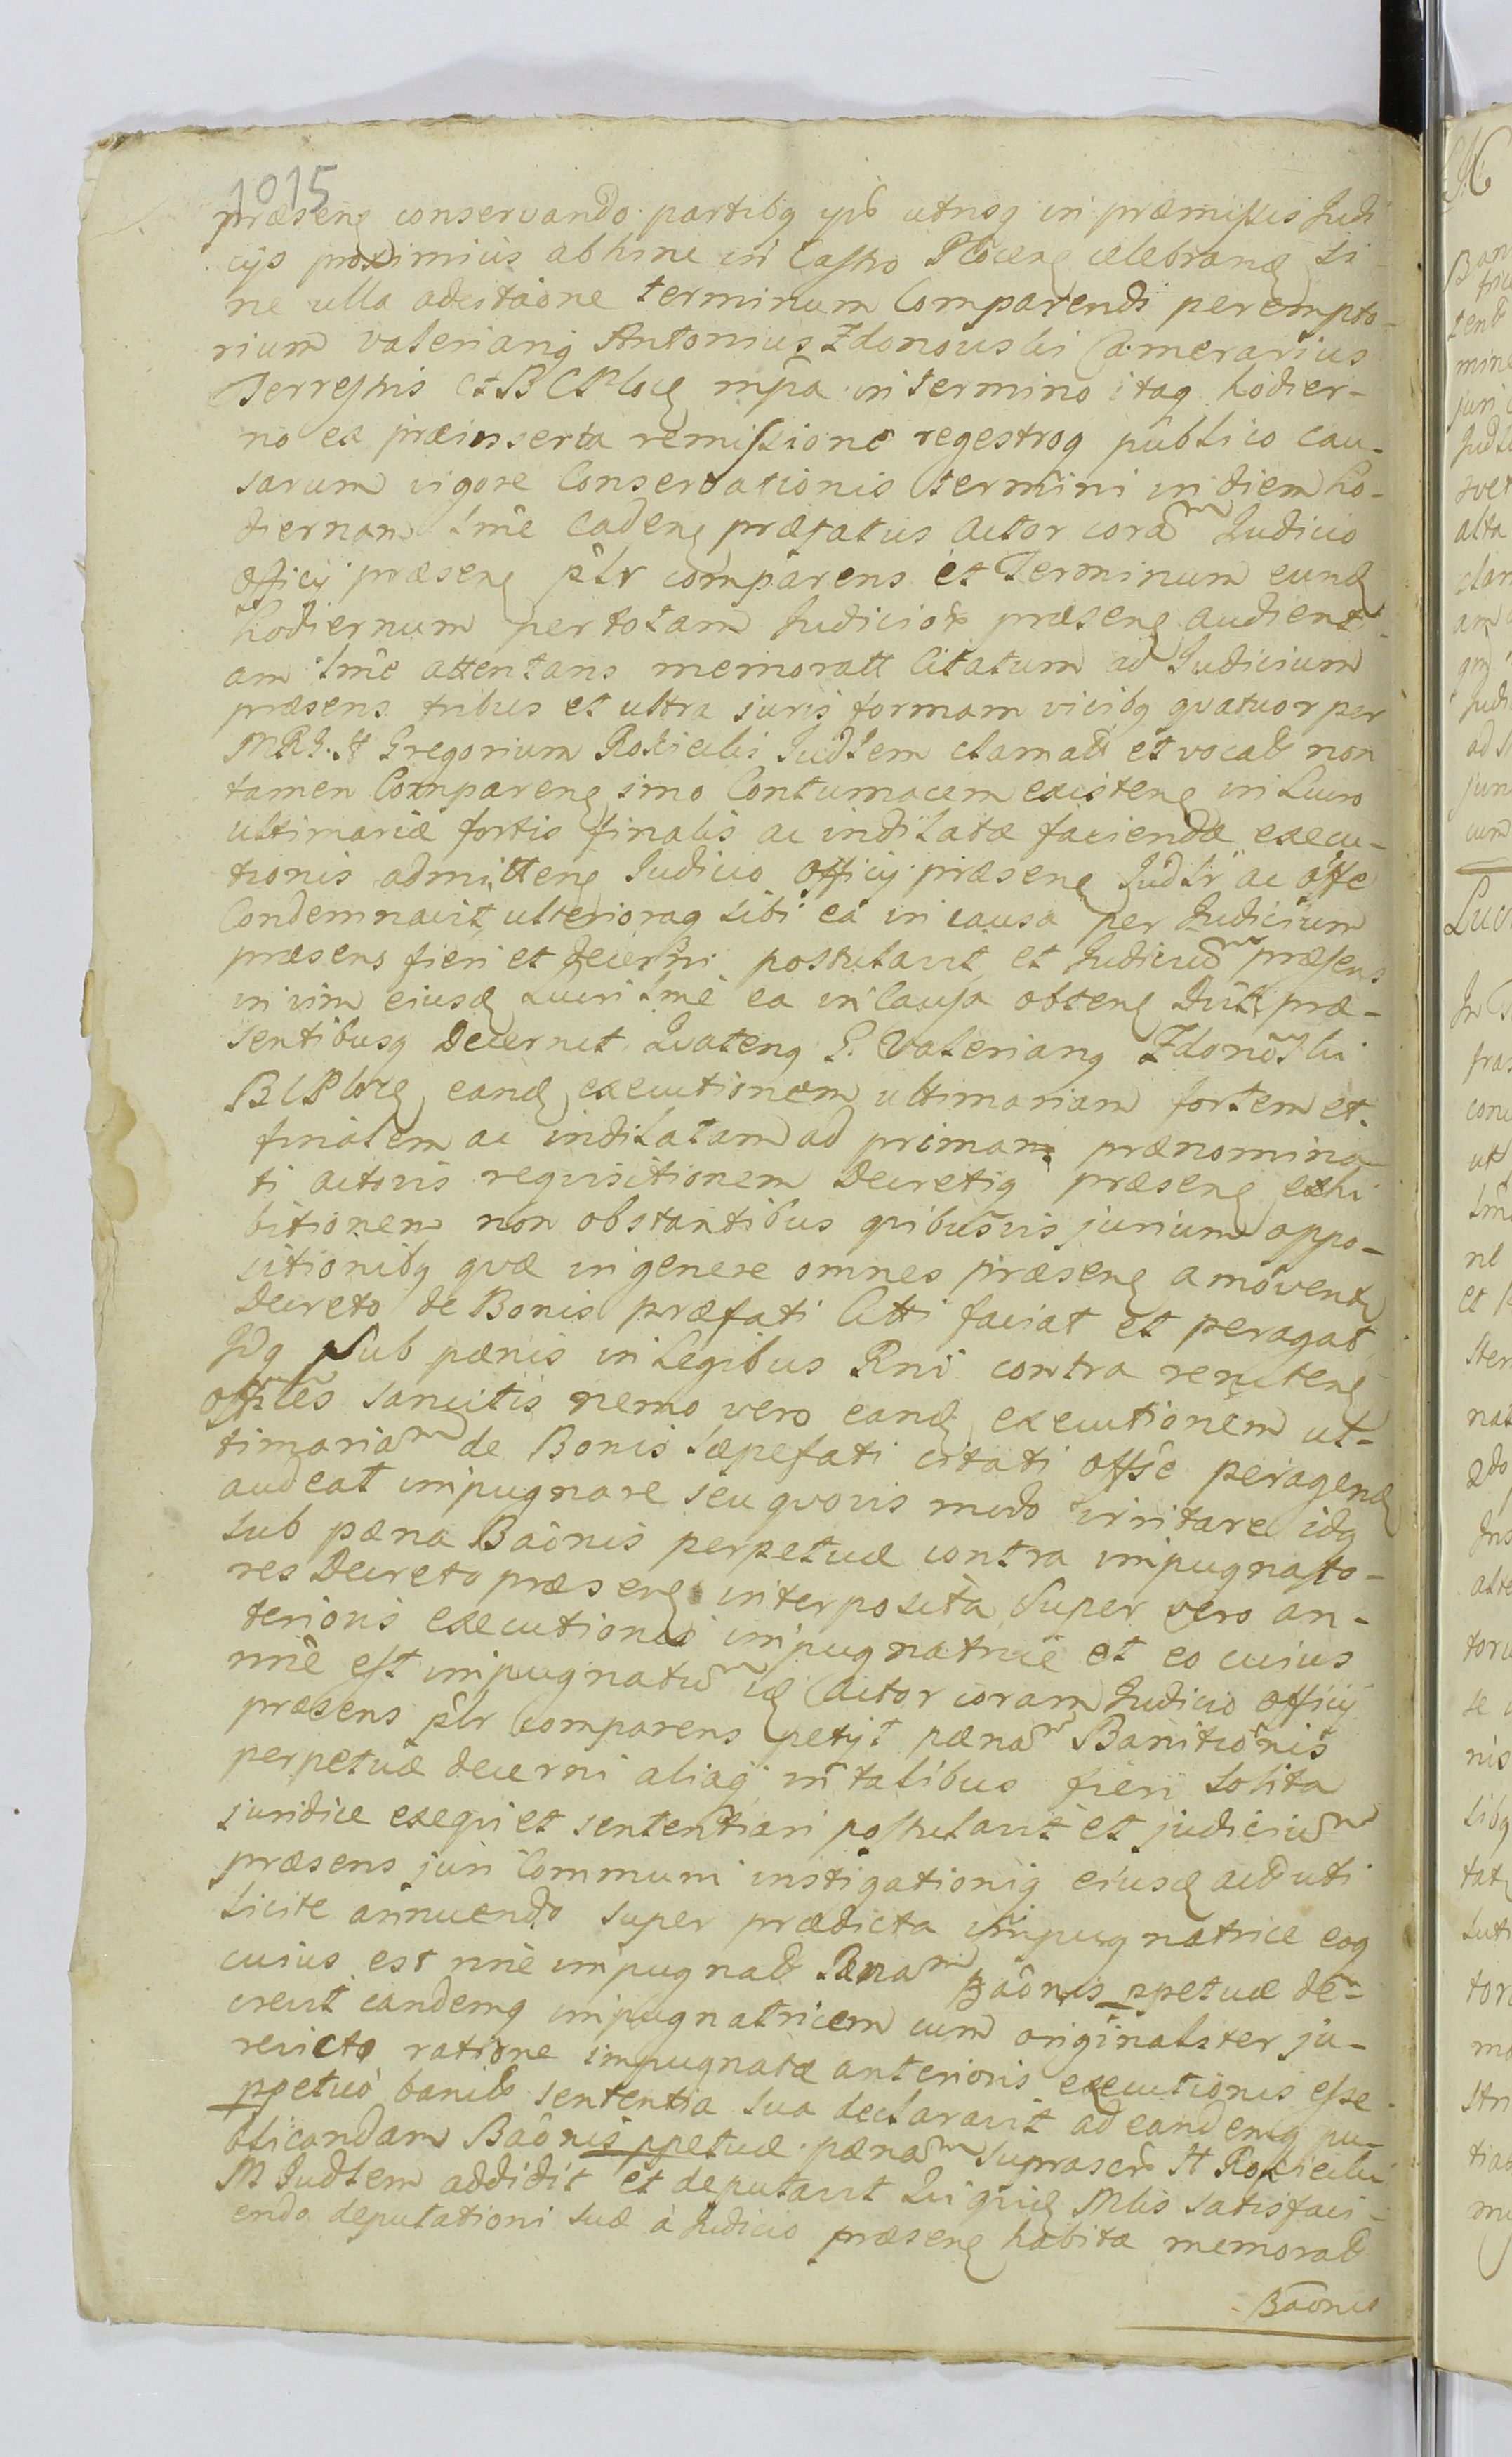 1015
præsenę conservando partibq ipīs utrisq in præmissis Judi
cijs proximius abhinc in Castro Plocenę celebranę si-
ne ulla adcitāone terminum Comparendi perempto-
rium Valerianq Antonius Zdonowski Camerarius
Terrestris et B C Plocę mp̄a in termino itaq hodier-
no ex præinserta remissione regestroq publico cau-
sarum vigore Conservationis termini in diem ho-
diernam lm̄e cadenę præfatus Actor corā Judicio
officij præsenę p̄lr comparens et Terminum eundę
hodiernum per totam Judicior præsenę audient-
iam lm̄e attentans memoratt Citatum ad Judicium
præsens tribus et ultra juris formam vicibq quatuor per
M R J. H Gregorium Rokicki Judlem clamatt et vocatt non
tamen Comparenę imo Contumacem existenę in Lucro
ultimariæ fortis finalis ac indilatæ faciendæ execu-
tionis admittenę Judicio Officij præsenę Judlr ac offe
Condemnavit, ulterioraq sibi ea in causa per Judicium
præsens fieri et decerni postulavit et Judiciū præsens
in vim eiusdę Lucri lm̄e ea in causa obtenę Dūti præ-
sentibusq Decernit Quatenq G. Valerianq Zdonōski
B C Plocę eandę executionem ultimariam fortem et
finalem ac indilatam ad primam prænomina
ti actoris requisitionem Decretiq præsenę exhi
bitionem non obstantibus quibusvis jurium oppo-
sitionibq quæ in genere omnes præsenę amoventr
Decreto de Bonis præfati Citti faciat et peragat
Idq sub pænis in Legibus Rni contra renitenę
offīles sancitis nemo vero eandę executionem ul-
timariā de Bonis sæpefati citati offse peragendę
audeat impugnare seu quovis modo irritare idq
sub pæna Baōnis perpetuæ contra impugnato-
res Decreto præsenę interposita Super vero an-
terioris executionis impugnatrice et eo cuius
nn̄e est impugnatū idę actor coram Judicio Officij
præsens p̄lr comparens petijt pænā Banitionis
perpetuæ decerni aliaq in talibus fieri solita
juridice exequi et sententiari postulavit et judiciū
præsens juri Communi instigationiq eiusdę actt uti
licite annuendo super prædicta impugnatrice eoq
cuius est nn̄e impugnatt Pænā Baōnis ppetuæ de-
crevit eandemq impugnatricem cum originaliter ju-
revicto ratione impugnatæ anterioris executionis esse
ppetuò banitt sententia sua declaravit ad eandemq pu-
blicandam Baōnis ppetuæ pænā suprascr H Rokicki
M Judlem addidit et deputavit Qui quidę Mlis satisfaci-
endo deputationi suæ à Judicio præsenę habitæ memoratt
Baōnis